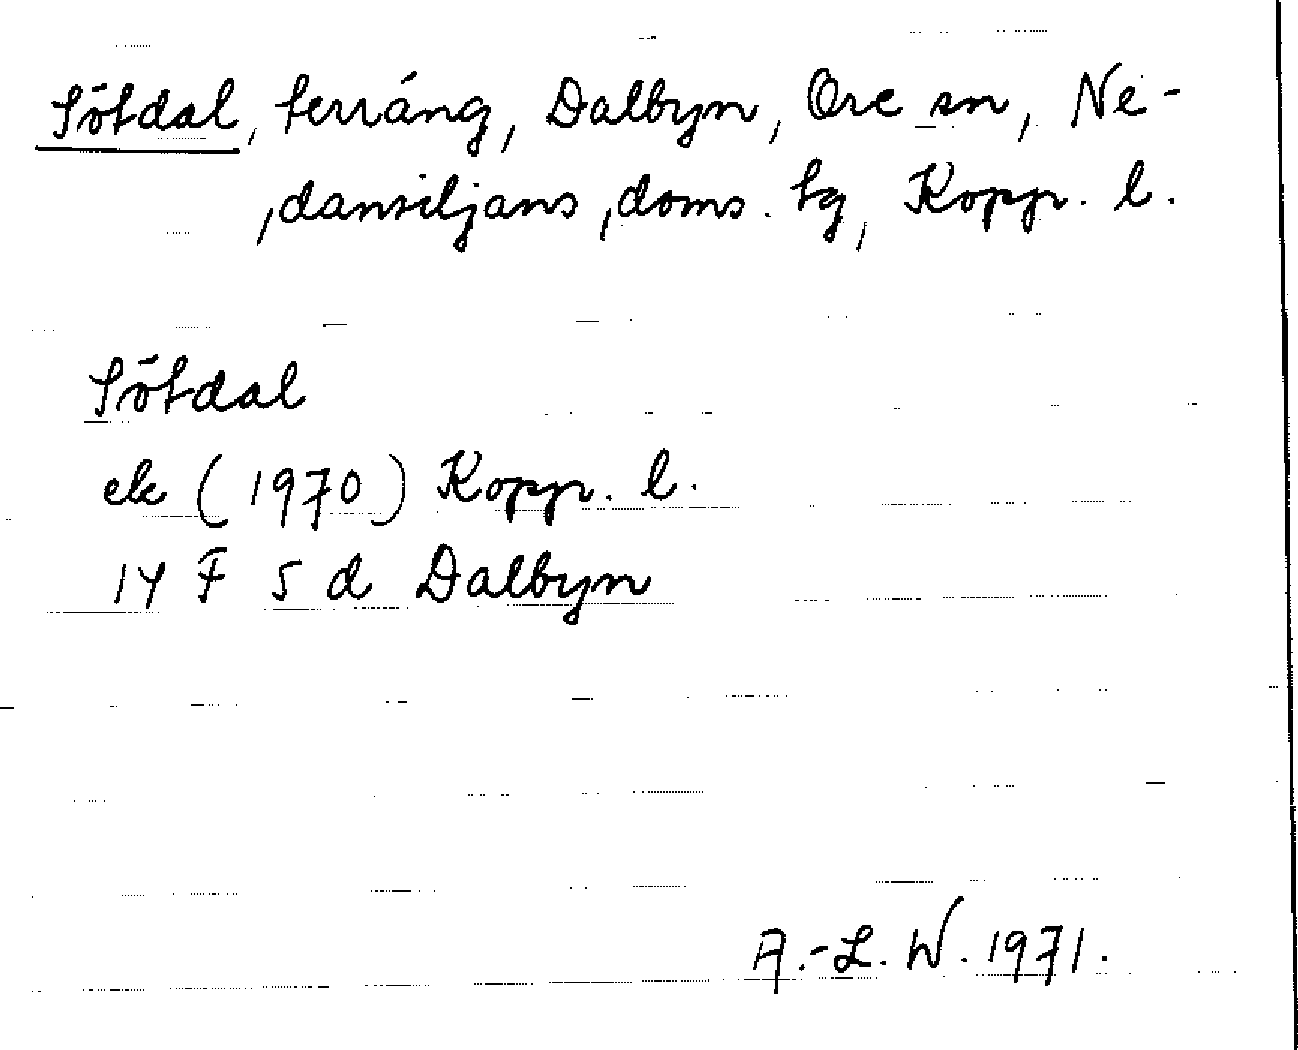 Sötdal, terräng, Dalbyn, Ore sn, Ne-
dansiljans doms. tg, Kopp. l.
Sötdal
ek (1970) Kopp. l.
14 F 5 d Dalbyn
A.-L. W. 1971.